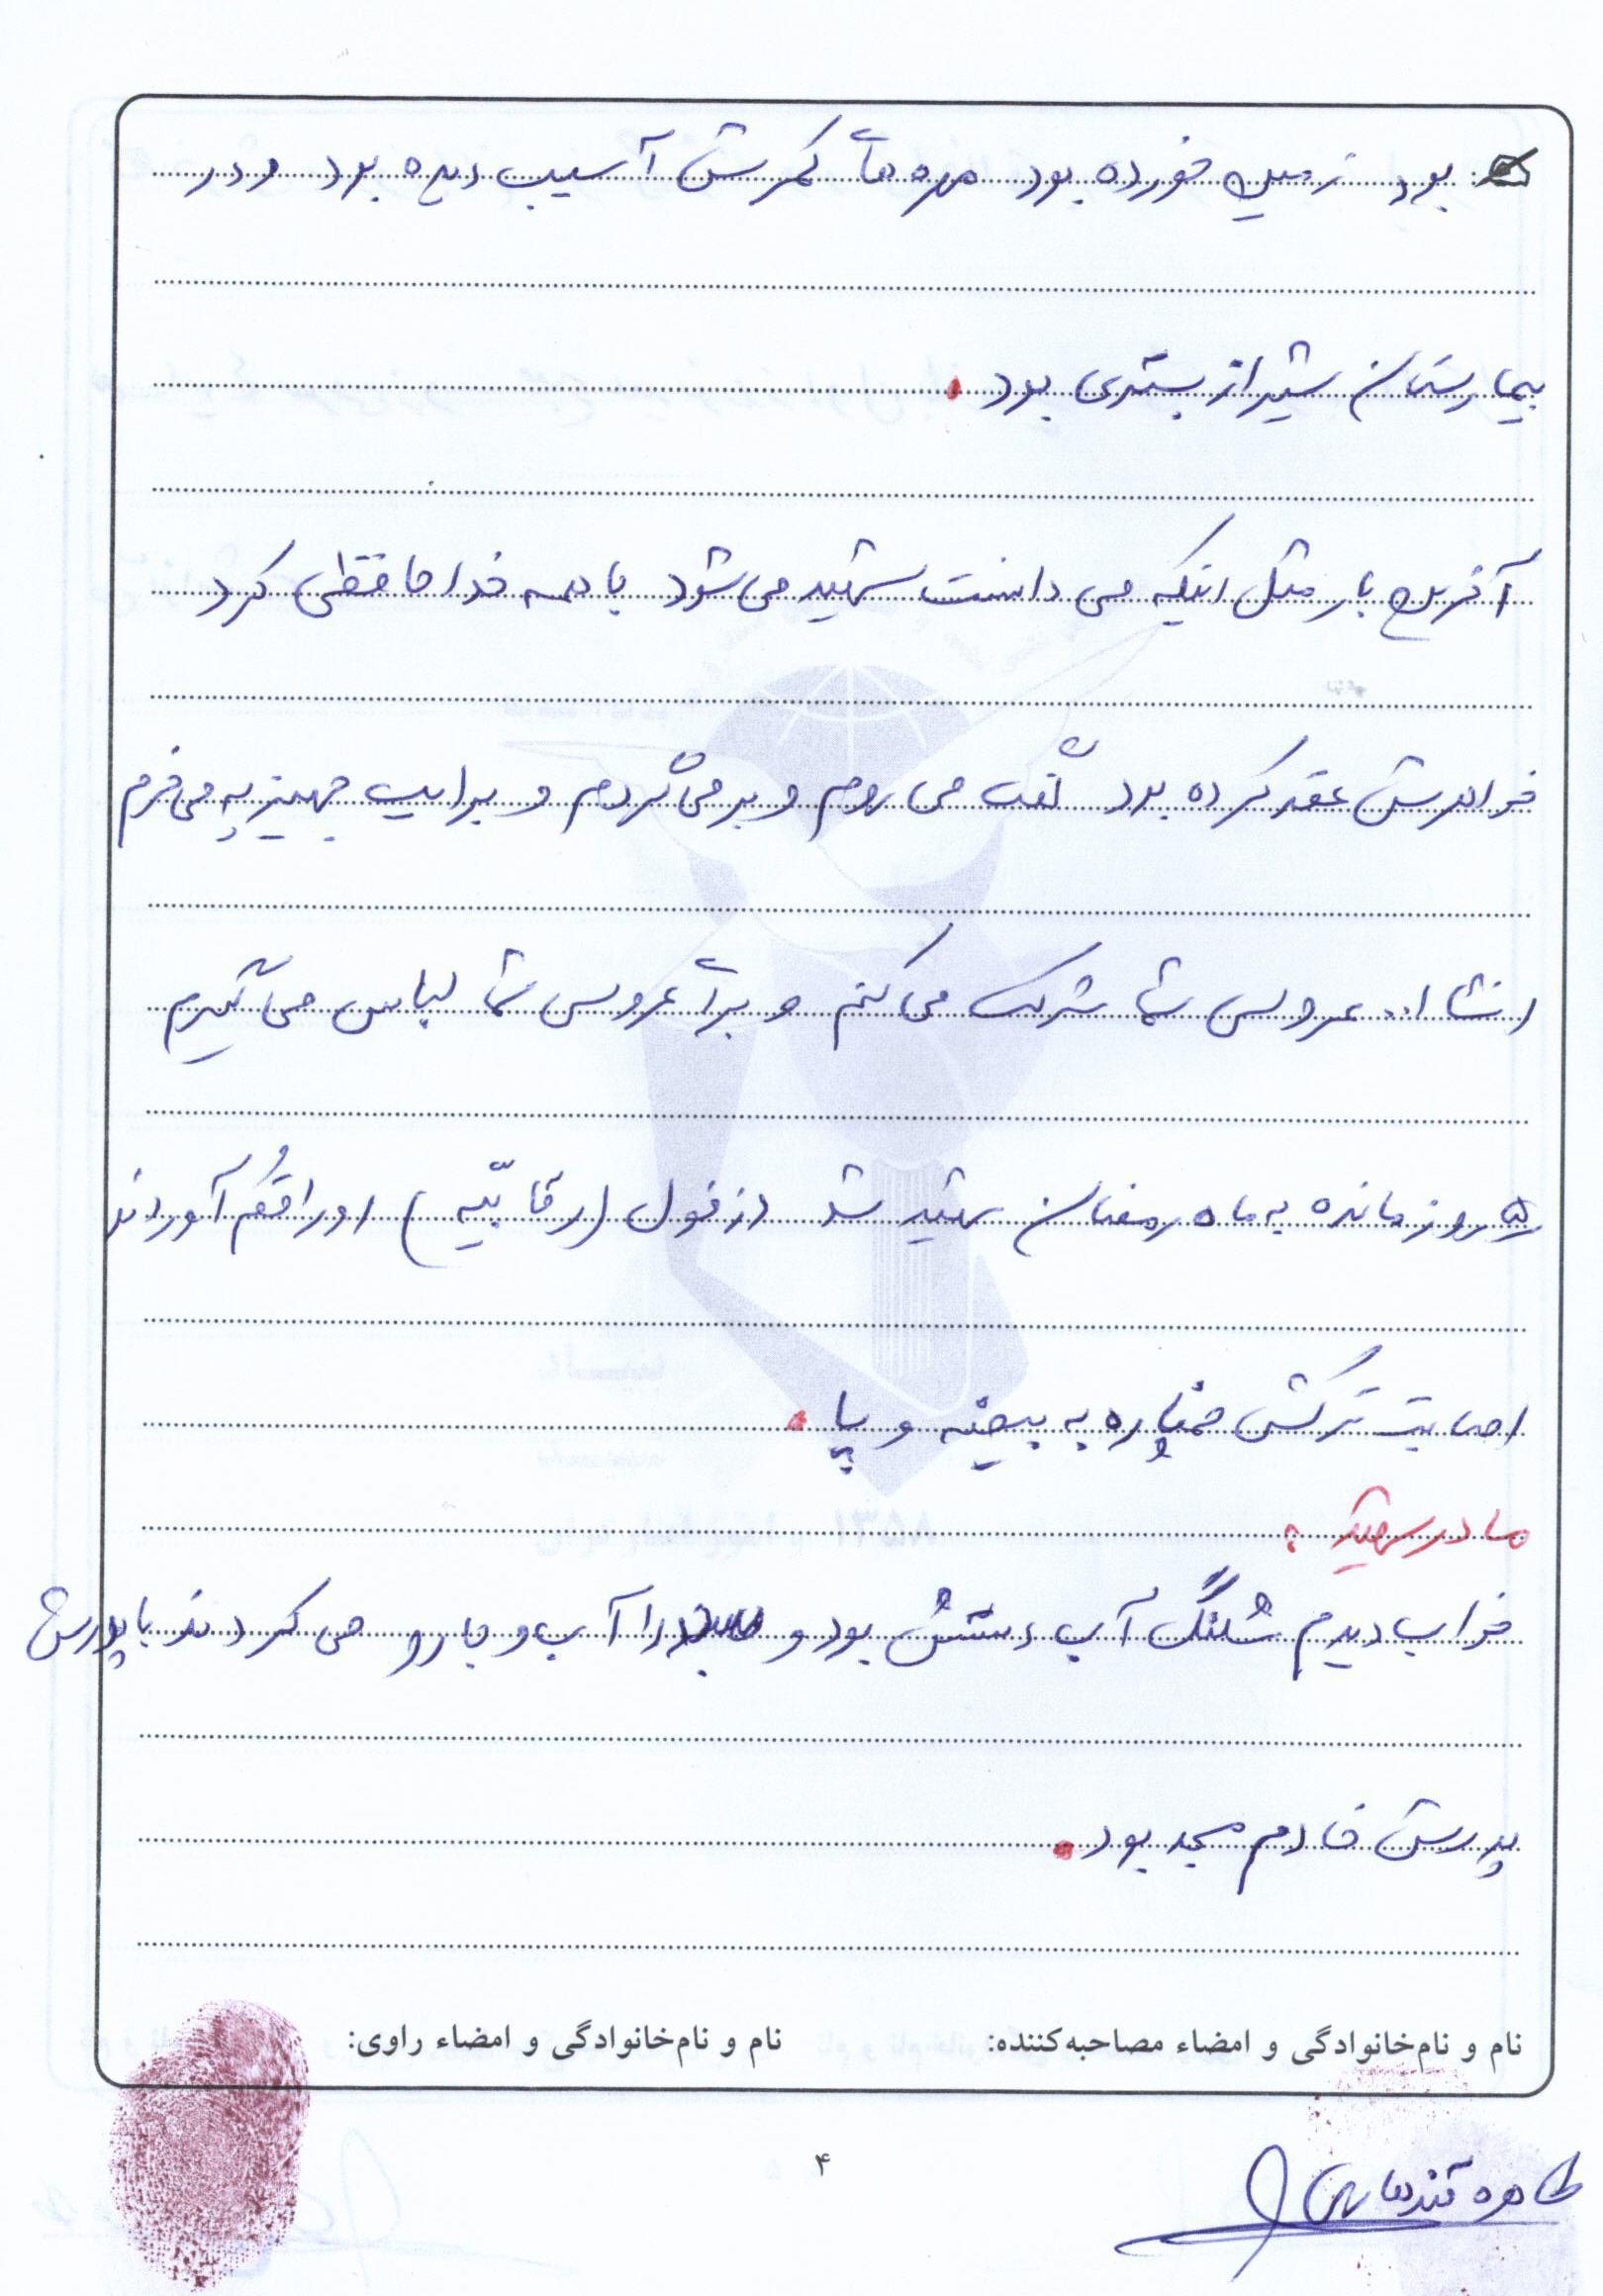 بود زمین خورده بود مهره های کمرش آسیب دیده بود و در
بیمارستان شیراز بستری بود.
آخرین بار مثل اینکه می دانست شهید می شود با همه خداحافظی کرد
خواهرش عقد کرده بود گفت می روم و برمی گردم و برایت جهیزیه می خرم
انشاا... عروسی شما شرکت می کنم و برای عروسی شما لباس می گیرم
۵ روز مانده به ماه رمضان شهید شد دزفول (رقابیّه) او را قُم آوردند
اصابت ترکش خمپاره به بیضه و پا.
مادر شهید:
خواب دیدم شلنگ آب دستش بود و را آب و جارو می کردند با پدرش
پدرش خادم مسجد بود.
نام و نام‌خانوادگی و امضاء مصاحبه‌کننده: نام و نام‌خانوادگی و امضاء راوی:
۴
طاهره